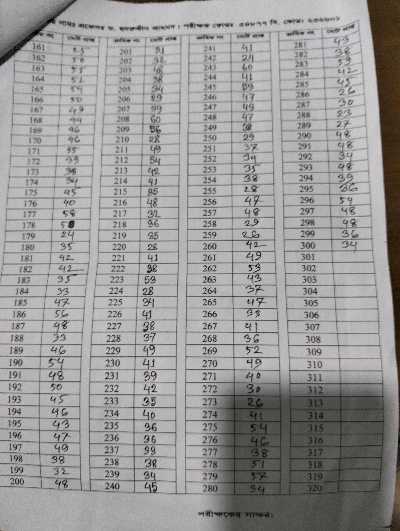 161 55 201 51 241 41 281 43
162 50 202 32 242 24 282 38
163 53 203 48 243 60 283 59
164 51 204 38 244 41 284 42
165 54 205 34 245 39 285 45
166 50 206 29 246 47 286 26
167 49 207 39 247 49 287 30
168 208 60 248 47 288 23
169 209 56 249 38 289 27
170 210 28 250 29 290 48
171 55 211 49 251 37 291 48
172 39 212 54 252 34 292 34
173 38 213 42 253 35 293 48
174 34 214 41 254 38 294 39
175 45 215 35 255 28 295 36
176 40 216 48 256 47 296 54
177 58 217 32 257 48 297 48
178 58 218 36 258 29 298 48
179 24 219 35 259 26 299 36
180 35 220 28 260 42 300 34
181 42 221 41 261 49 301
182 42 222 38 262 53 302
183 35 223 53 263 43 303
184 33 224 28 264 37 304
185 47 225 34 265 47 305
186 56 226 41 266 35 306
187 48 227 38 267 41 307
188 33 228 37 268 36 308
189 46 229 49 269 52 309
190 54 230 41 270 49 310
191 48 231 39 271 40 311
192 50 232 42 272 30 312
193 45 233 35 273 26 313
194 46 234 40 274 41 314
195 43 235 36 275 54 315
196 47 236 36 276 46 316
197 49 237 39 277 38 317
198 38 238 38 278 51 318
199 32 239 34 279 57 319
200 48 240 45 280 34 320
পরীক্ষকের স্বাক্ষর: